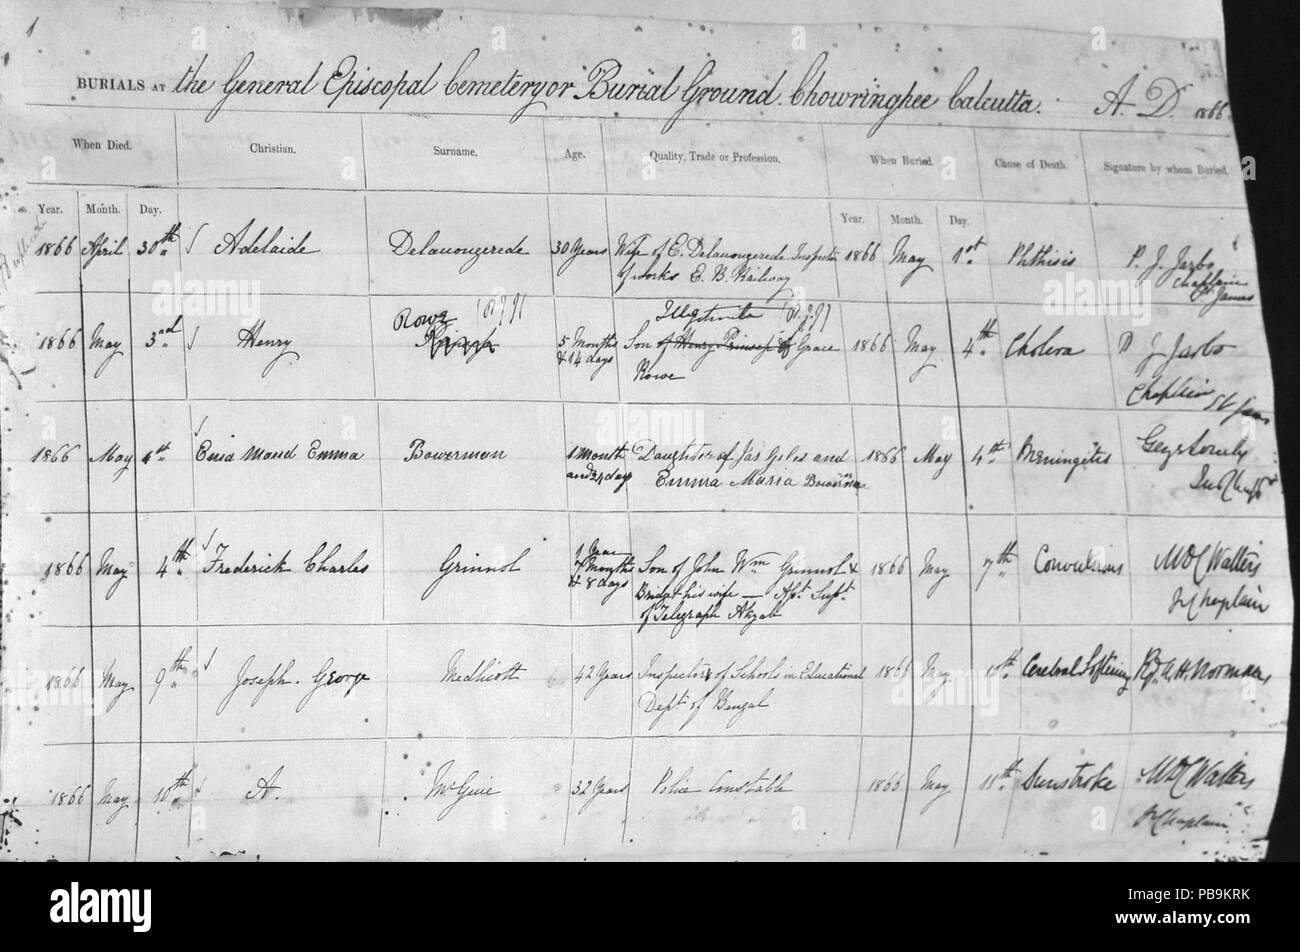 1
BURIALS AT the General Episcopal Cemetery or Burial Ground. Chowringhee Calcutta. A. D. 1866
When Died. Christian. Surname. Age. Quality, Trade or Profession. When Buried. Cause of Death. Signature by whom Buried.
Year. Month. Day. Year. Month. Day.
1866 April 30th Adelaide Delauougerede 30 Years Wife of E. Delauougerede Inspector 1866 May 1st Phthisis P. J. Jarbo
of works E. B. Railway Chaplain
St James
Rowe P.J.J Illegitimate P.J.J
1866 May 3rd Henry 5 Months Son of Henry Prinsep & of Grace 1866 May 4th Cholera P J Jarbo
& 14 days Rowe Chaplain
St James
1866 May 4th Maud Emma Bowerman 1 Month Daughter of Jas Giles and 1866 May 4th Meningitis
and 24 days Emma Maria Bowerman
1 Year
1866 May 4th Frederick Charles Grinnol 7 Months Son of John Wm Grinnol & 1866 May 7th Convulsions Walters
& 8 days Bridget his wife — Asst Supt. Chaplain
of Telegraph Akyab
1866 May 9th Joseph. George Medlicott 42 Years Inspector of Schools in Educational 1866 May 11th Cerebral Softening Norman
Dept of Bengal
1866 May 10th A. McGuie 32 Years Police Constable 1866 May 11th Sunstroke Walters
Chaplain
alamy
Image ID: PB9KRK
www.alamy.com